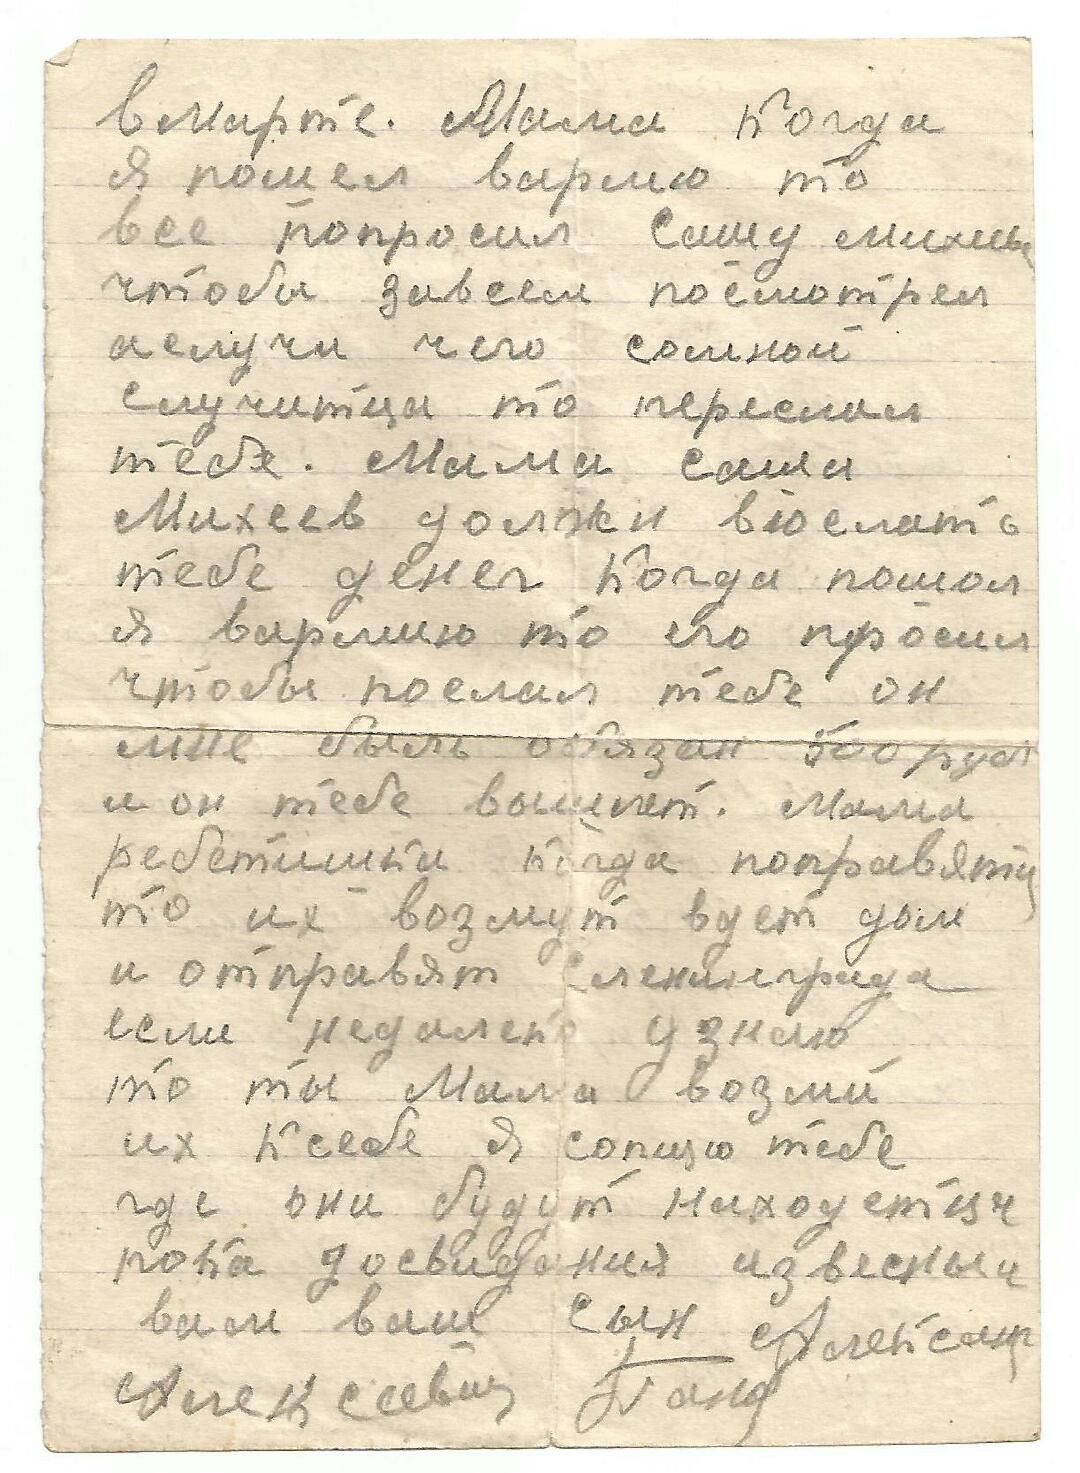 вмарте. Мама когда
я пошел вармю то
все попросил Сашу
чтобы завсем посмотрел
аслучи чего сомной
случитца то переслал
тебе. Мама Саша
Михеев должен выслать
тебе денег когда пошол
я вармию то его просил
чтобы послал тебе он
мне быль обязан 500 руб
и он тебе вышлет. Мама
ребетишки когда поправятц
то их возмут вдет дом
и отправят Сленинграда
если недалеко узнаю
то ты Мама возми
их ксебе я сопщю тебе
где они будут находетца
пока досвидания извесный
вам ваш Сын Алексанр
Алексеевич